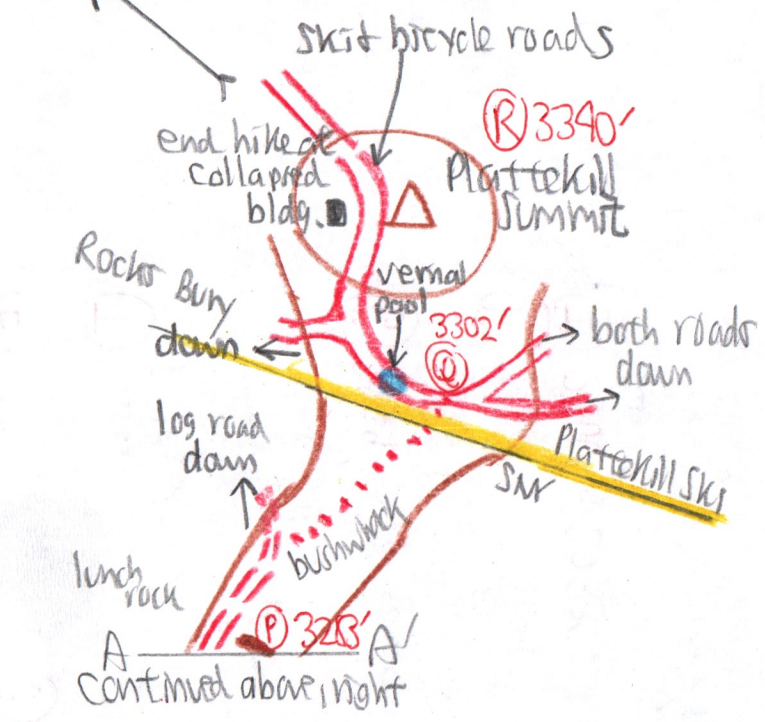 ski & bicycle roads
R 3340'
Plattekill
Summit
end hike at
collapsed
bldg.
vernal
pool
Rocks Bury
down
3302'
Q
both roads
down
log road
down
Plattekill Ski
bushwhack
lunch
rock
P 3213'
A A'
continued above, right